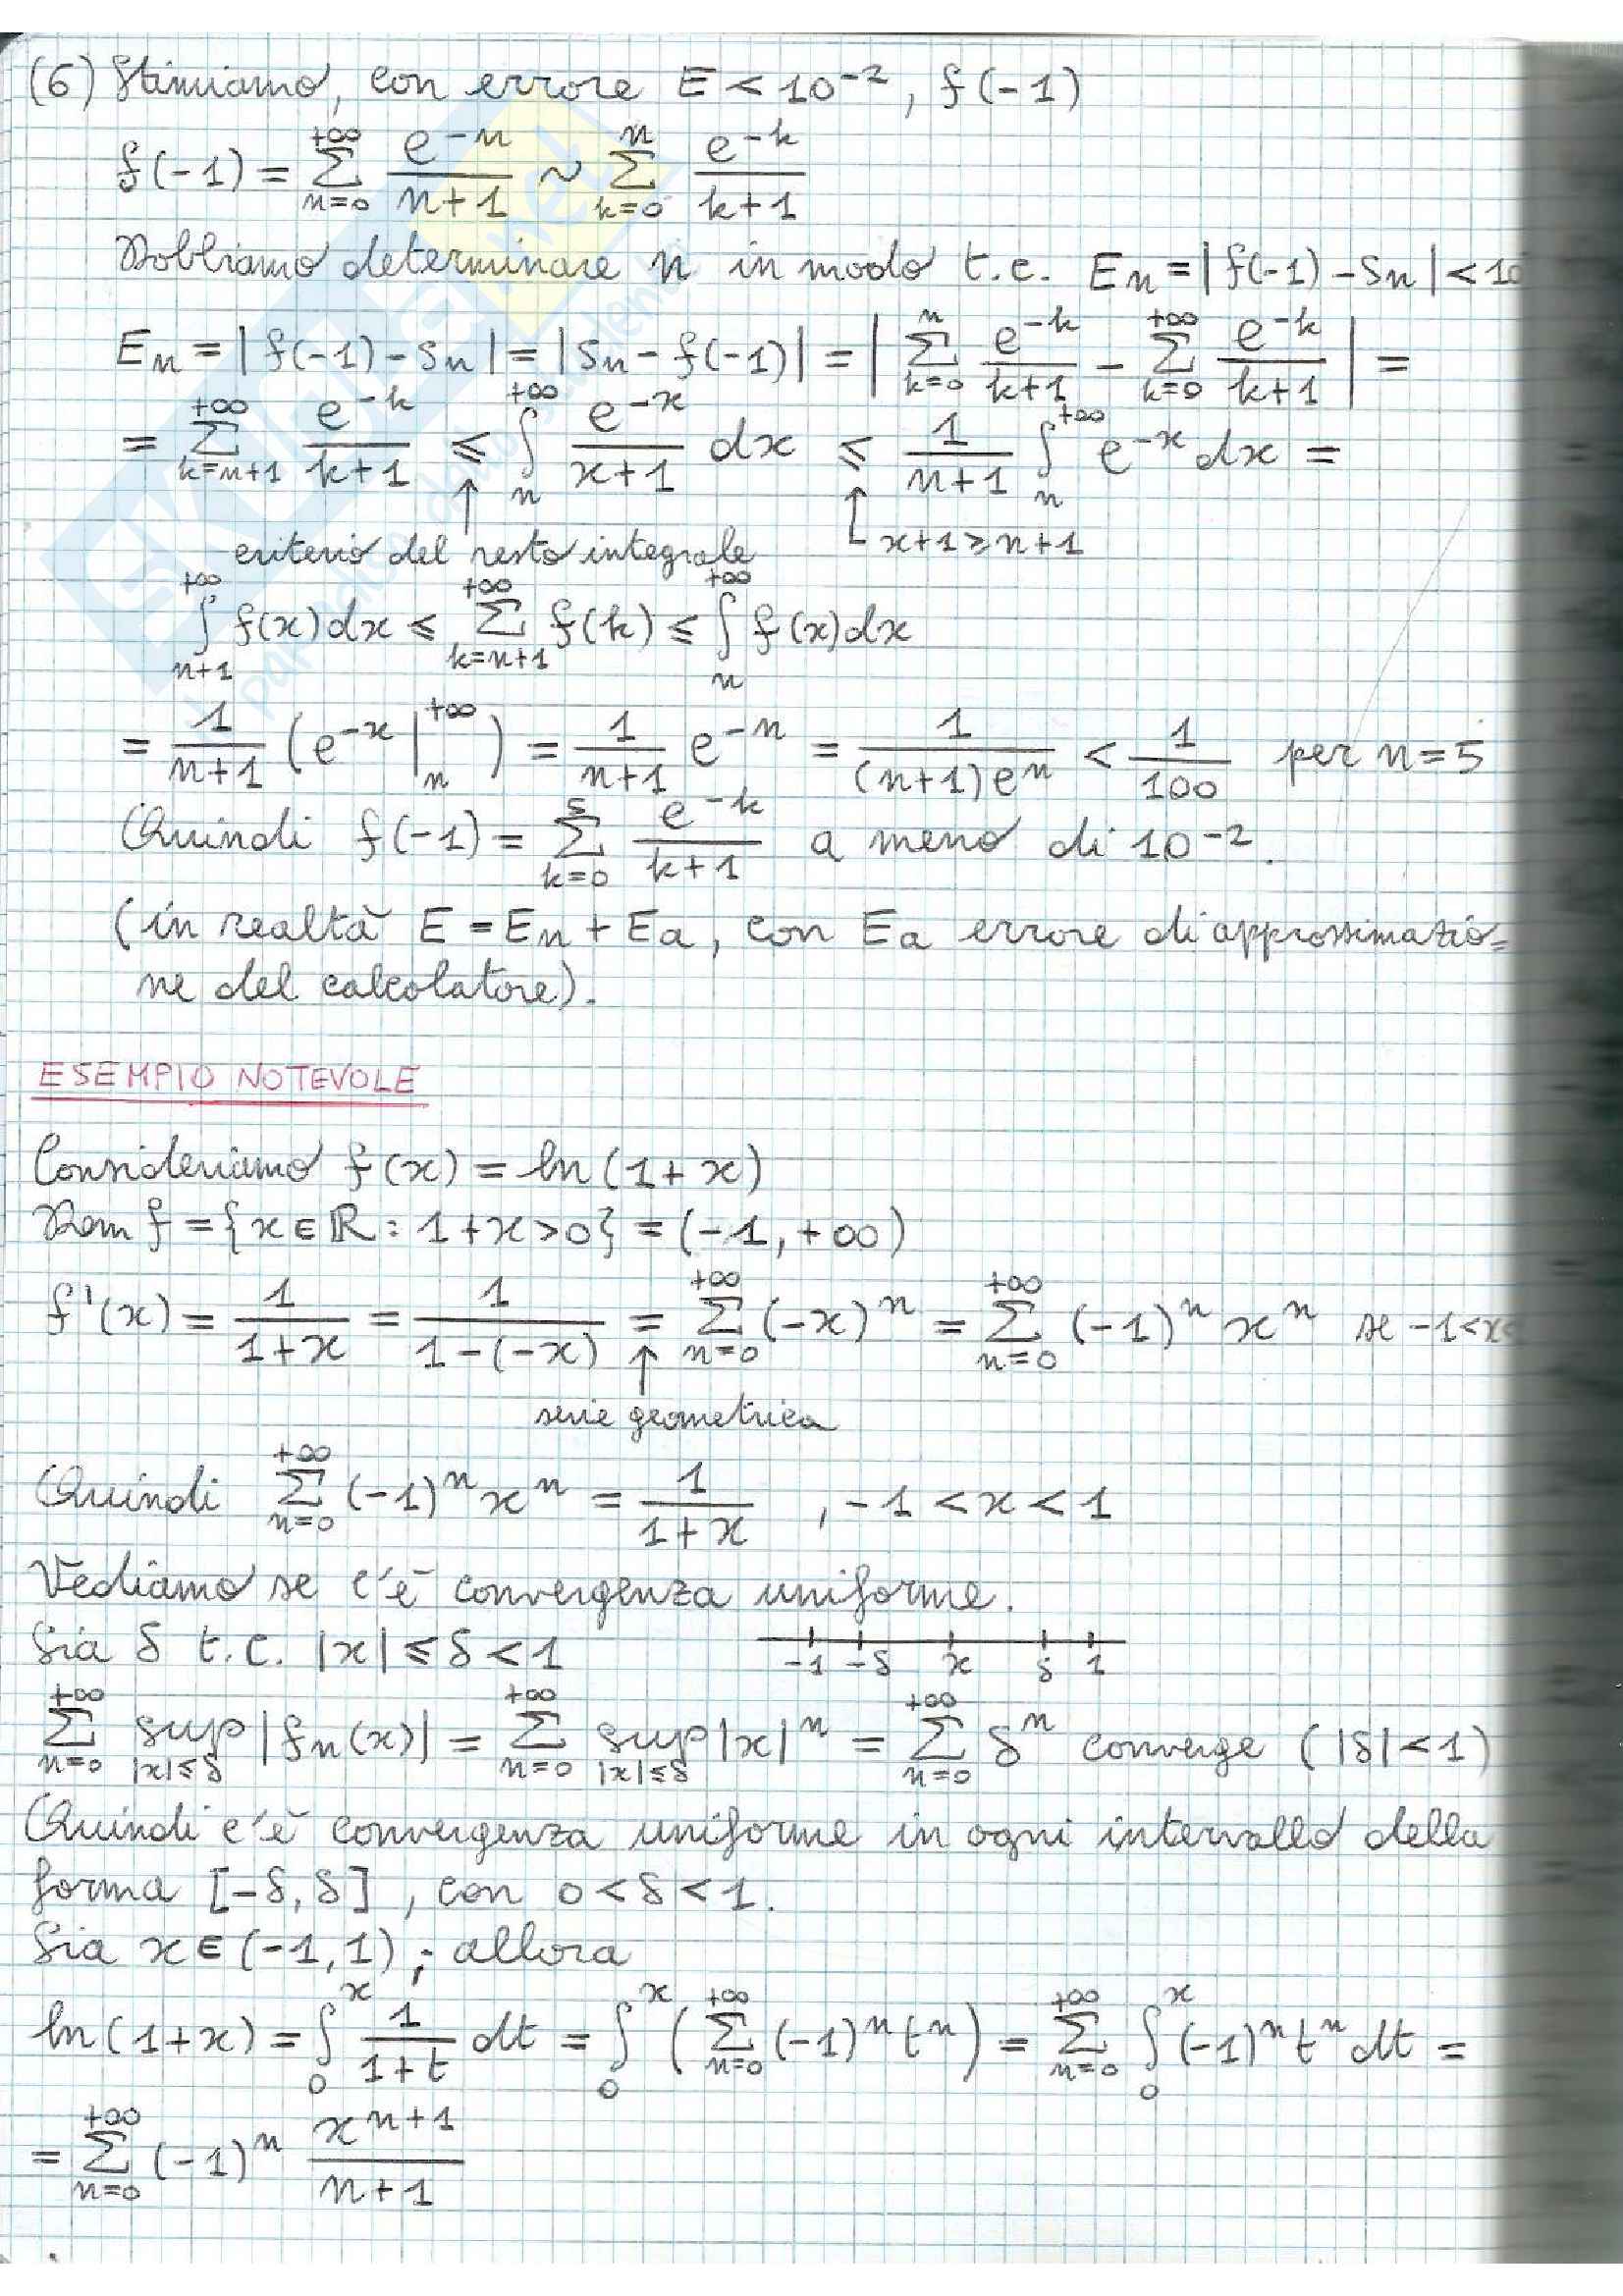 (6) Stimiamo, con errore E < 10^-2, f(-1)
f(-1) = Σ_{n=0}^{+∞} e^{-n}/(n+1) ~ Σ_{k=0}^{n} e^{-k}/(k+1)
Dobbiamo determinare n in modo t.c. E_n = |f(-1) - S_n| < 10
E_n = |f(-1) - S_n| = |S_n - f(-1)| = | Σ_{k=0}^{n} e^{-k}/(k+1) - Σ_{k=0}^{+∞} e^{-k}/(k+1) | =
= Σ_{k=n+1}^{+∞} e^{-k}/(k+1) ≤ ∫_{n}^{+∞} e^{-x}/(x+1) dx ≤ 1/(n+1) ∫_{n}^{+∞} e^{-x} dx =
↑ criterio del resto integrale ↑ x+1 ≥ n+1
∫_{n+1}^{+∞} f(x)dx ≤ Σ_{k=n+1}^{+∞} f(k) ≤ ∫_{n}^{+∞} f(x)dx
= 1/(n+1) (e^{-x} |_{n}^{+∞}) = 1/(n+1) e^{-n} = 1/((n+1)e^n) < 1/100 per n=5
Quindi f(-1) = Σ_{k=0}^{5} e^{-k}/(k+1) a meno di 10^-2.
(in realtà E = E_n + E_a, con E_a errore di approssimazio=
ne del calcolatore).
ESEMPIO NOTEVOLE
Consideriamo f(x) = ln(1+x)
Dom f = {x∈ℝ : 1+x>0} = (-1, +∞)
f'(x) = 1/(1+x) = 1/(1-(-x)) = Σ_{n=0}^{+∞} (-x)^n = Σ_{n=0}^{+∞} (-1)^n x^n se -1<x<
↑ serie geometrica
Quindi Σ_{n=0}^{+∞} (-1)^n x^n = 1/(1+x) , -1 < x < 1
Vediamo se c'è convergenza uniforme.
Sia δ t.c. |x| ≤ δ < 1 -1 -δ x δ 1
Σ_{n=0}^{+∞} sup_{|x|≤δ} |f_n(x)| = Σ_{n=0}^{+∞} sup_{|x|≤δ} |x|^n = Σ_{n=0}^{+∞} δ^n converge (|δ|<1)
Quindi c'è convergenza uniforme in ogni intervallo della
forma [-δ, δ], con 0 < δ < 1.
Sia x ∈ (-1, 1) ; allora
ln(1+x) = ∫_{0}^{x} 1/(1+t) dt = ∫_{0}^{x} ( Σ_{n=0}^{+∞} (-1)^n t^n ) = Σ_{n=0}^{+∞} ∫_{0}^{x} (-1)^n t^n dt =
= Σ_{n=0}^{+∞} (-1)^n x^{n+1}/(n+1)